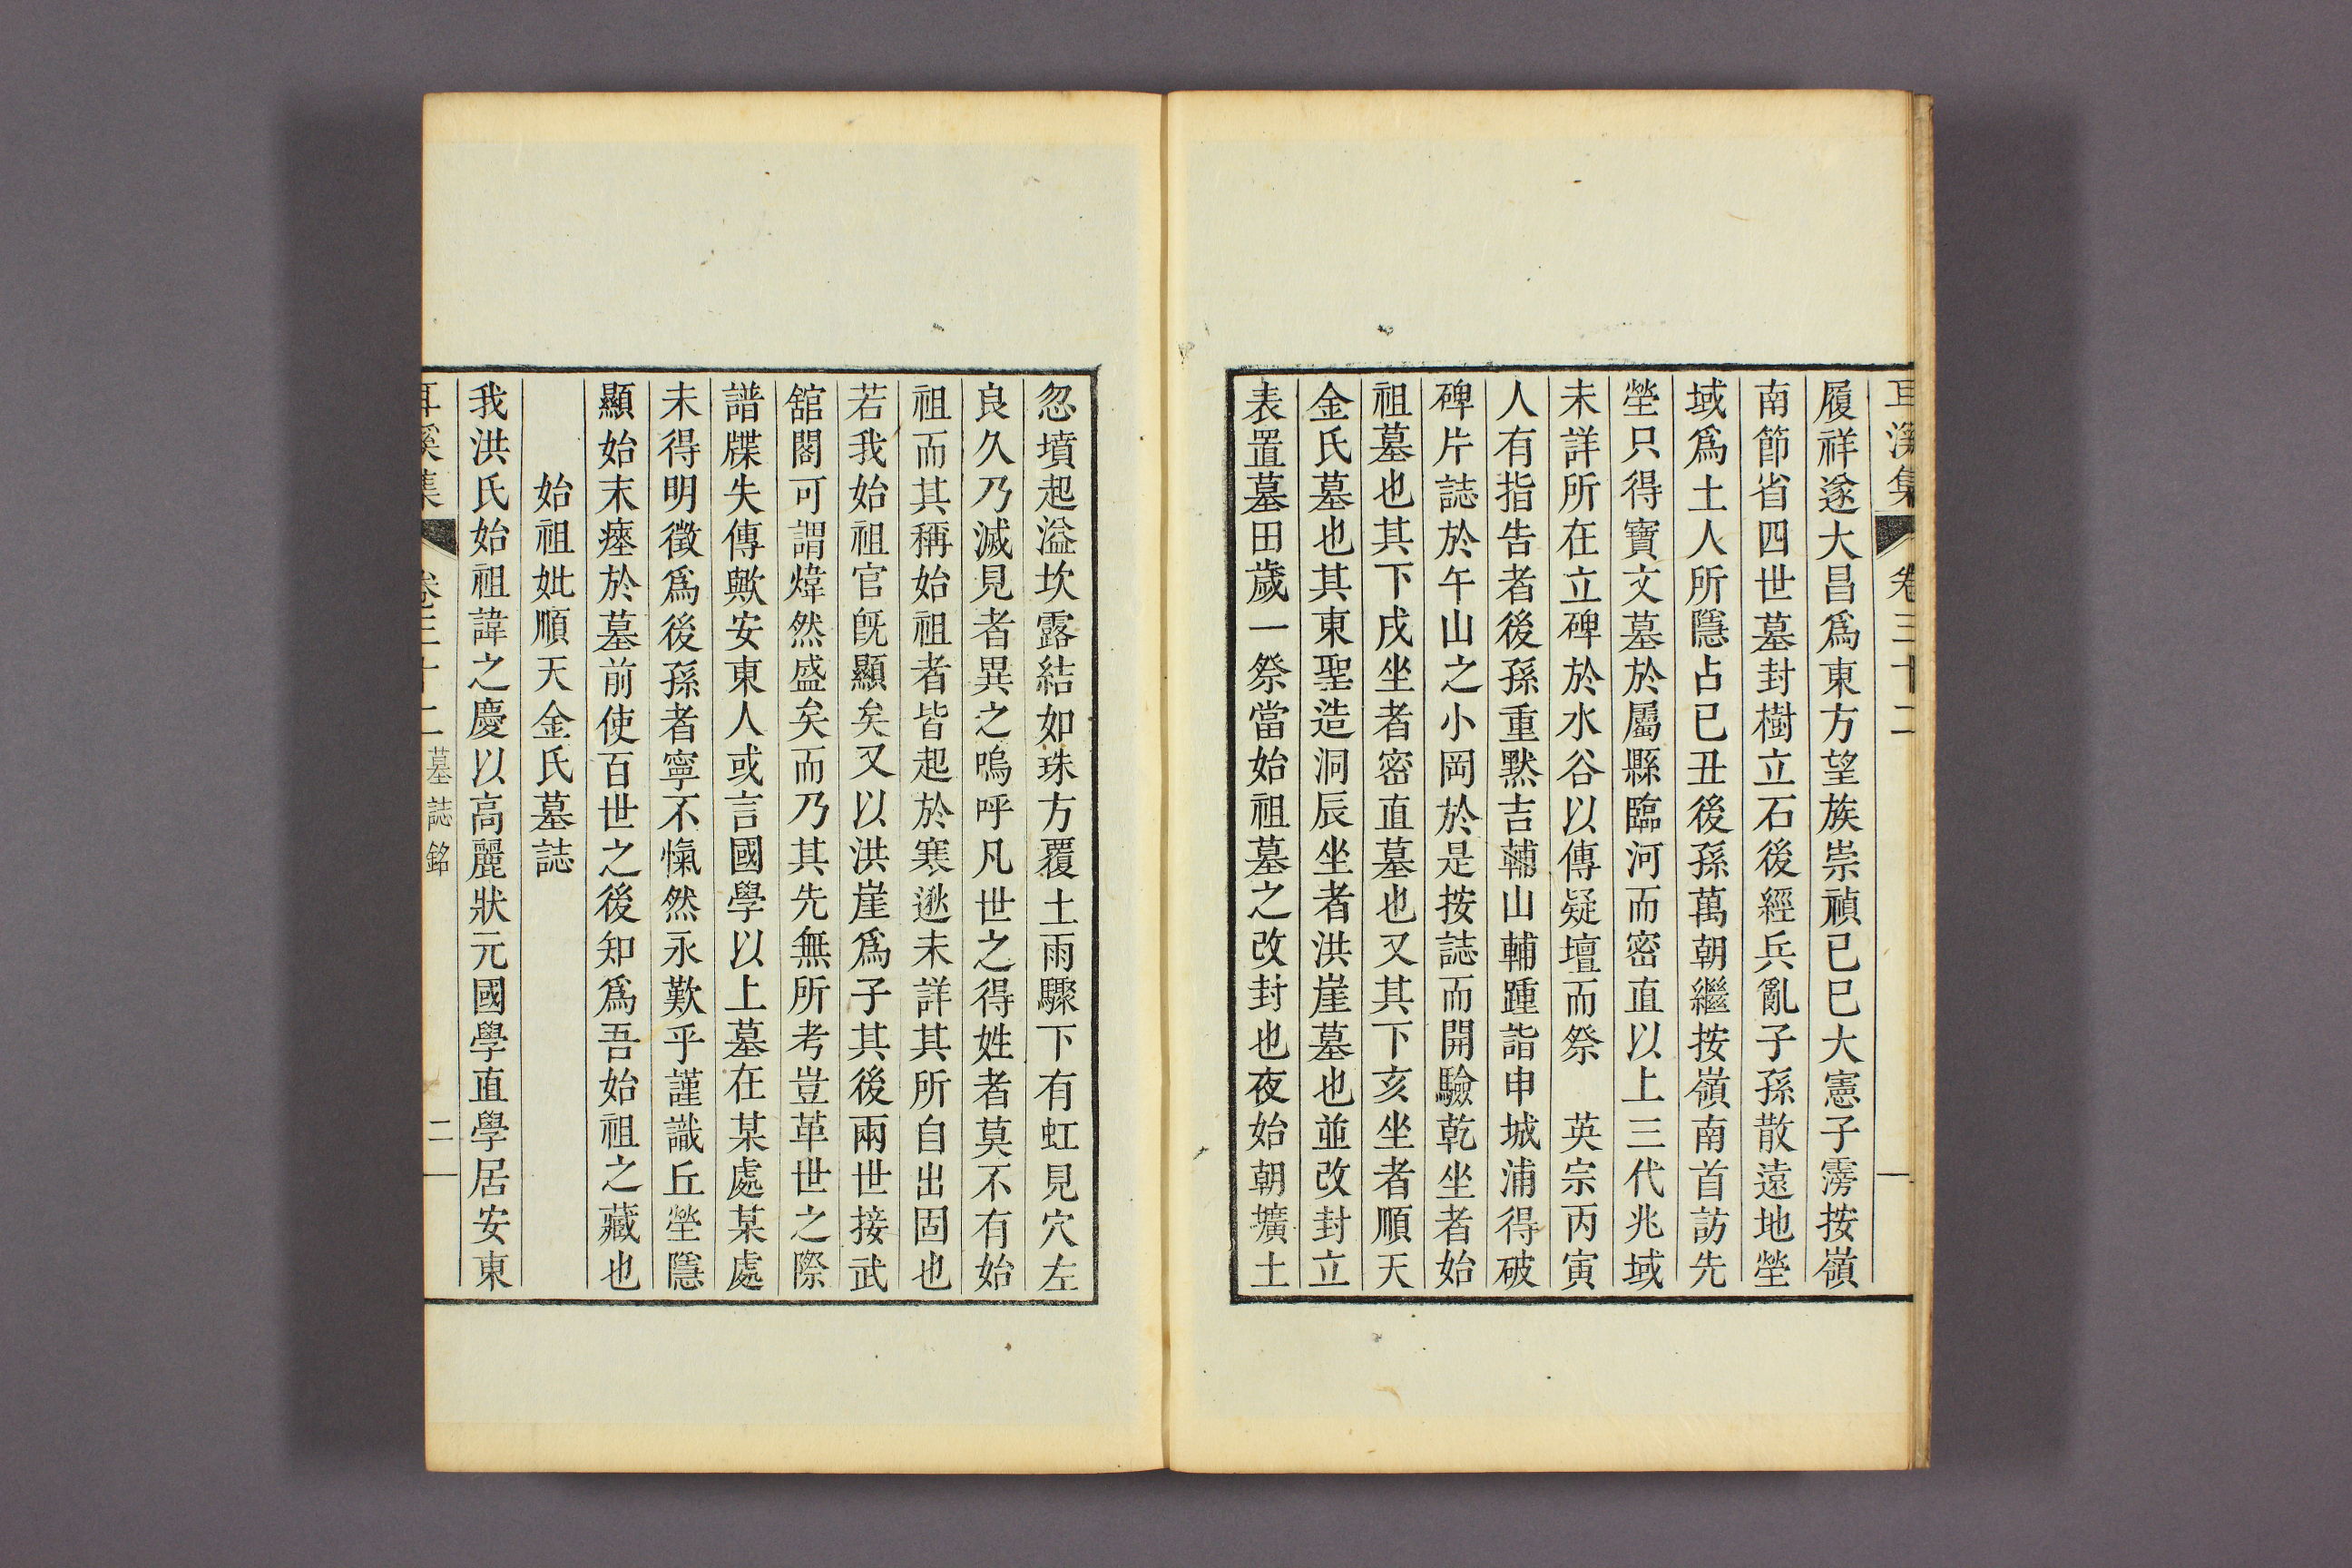 耳溪集 卷三十二 一
履祥遂大昌爲東方望族崇禎己巳大憲子霶按嶺
南節省四世墓封樹立石後經兵亂子孫散遠地塋
域爲土人所隱占已丑後孫萬朝繼按嶺南首訪先
塋只得寶文墓於屬縣臨河而密直以上三代兆域
未詳所在立碑於水谷以傳疑壇而祭　英宗丙寅
人有指告者後孫重默吉輔山輔踵詣申城浦得破
碑片誌於午山之小岡於是按誌而開驗乾坐者始
祖墓也其下戌坐者密直墓也又其下亥坐者順天
金氏墓也其東聖造洞辰坐者洪崖墓也並改封立
表置墓田歲一祭當始祖墓之改封也夜始朝壙土
忽墳起溢坎露結如珠方覆土雨驟下有虹見穴左
良久乃滅見者異之嗚呼凡世之得姓者莫不有始
祖而其稱始祖者皆起於寒逖未詳其所自出固也
若我始祖官旣顯矣又以洪崖爲子其後兩世接武
舘閣可謂煒然盛矣而乃其先無所考豈革世之際
譜牒失傳歟安東人或言國學以上墓在某處某處
未得明徵爲後孫者寧不愾然永歎乎謹識丘塋隱
顯始末瘞於墓前使百世之後知爲吾始祖之藏也
始祖妣順天金氏墓誌
我洪氏始祖諱之慶以高麗狀元國學直學居安東
耳溪集 卷三十二 墓誌銘 二